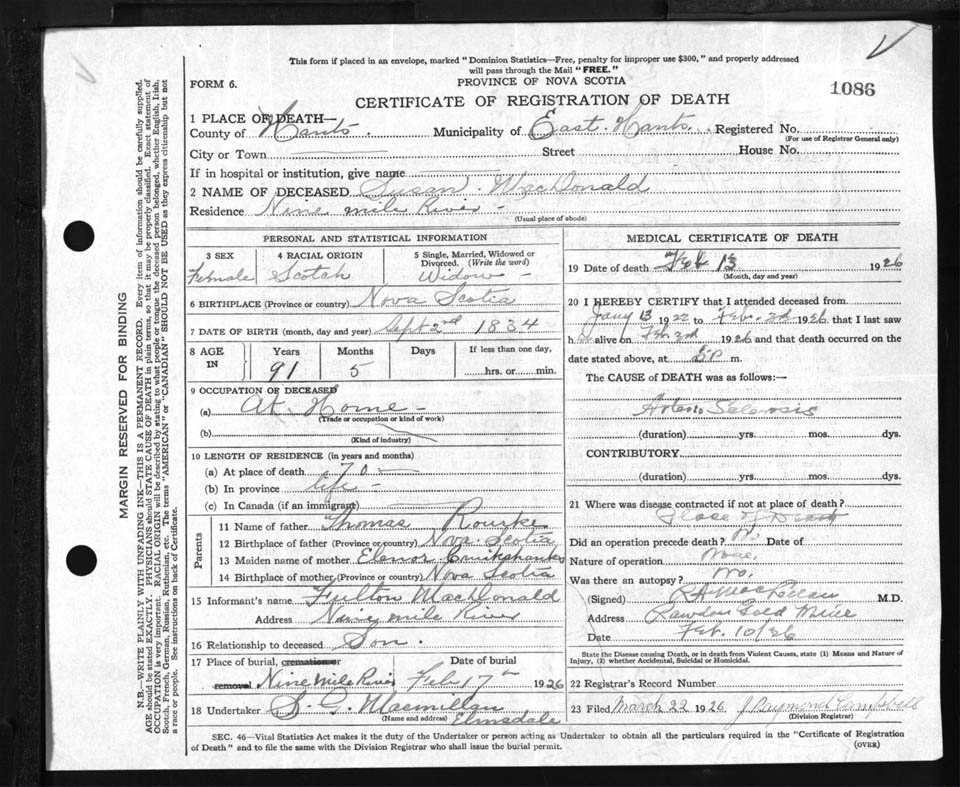 This form if placed in an envelope, marked "Dominion Statistics—Free, penalty for improper use $300," and properly addressed
will pass through the Mail "FREE."
FORM 6.
PROVINCE OF NOVA SCOTIA
CERTIFICATE OF REGISTRATION OF DEATH
1086
1 PLACE OF DEATH—
County of Hants. Municipality of East. Hants. Registered No.
(For use of Registrar General only)
City or Town Street House No.
If in hospital or institution, give name
2 NAME OF DECEASED Susan. MacDonald
Residence Nine mile River -
(Usual place of abode)
PERSONAL AND STATISTICAL INFORMATION
3 SEX
Female
4 RACIAL ORIGIN
Scotch
5 Single, Married, Widowed or
Divorced. (Write the word)
Widow -
6 BIRTHPLACE (Province or country) Nova Scotia
7 DATE OF BIRTH (month, day and year) Sept 2nd 1834
8 AGE
IN
Years
91
Months
5
Days
If less than one day,
hrs. or min.
9 OCCUPATION OF DECEASED
(a) At Home
(Trade or occupation or kind of work)
(b)
(Kind of industry)
10 LENGTH OF RESIDENCE (in years and months)
(a) At place of death 70 —
(b) In province life -
(c) In Canada (if an immigrant)
Parents
11 Name of father Thomas Rourke
12 Birthplace of father (Province or country) Nova. Scotia
13 Maiden name of mother Elenor Cruikshanks
14 Birthplace of mother (Province or country) Nova Scotia
15 Informant's name Fulton MacDonald
Address Nine mile River
16 Relationship to deceased Son.
17 Place of burial, cremation or Date of burial
removal Nine Mile River Feb 17th 1926
18 Undertaker S. G. Macmillan
(Name and address) Elmsdale
MEDICAL CERTIFICATE OF DEATH
19 Date of death Feb 13 1926
(Month, day and year)
20 I HEREBY CERTIFY that I attended deceased from
Jany 13 1922 to Feb. 2d 1926 that I last saw
h alive on Feb. 2d 1926 and that death occurred on the
date stated above, at m.
The CAUSE of DEATH was as follows:—
Arterio Sclerosis
(duration) yrs. mos. dys.
CONTRIBUTORY
(duration) yrs. mos. dys.
21 Where was disease contracted if not at place of death?
Place of Death
Did an operation precede death? No. Date of
Nature of operation None.
Was there an autopsy? No.
(Signed) M.D.
Address Rawdon Gold Mine
Date Feb. 10/26
State the Disease causing Death, or in death from Violent Causes, state (1) Means and Nature of
Injury, (2) whether Accidental, Suicidal or Homicidal.
22 Registrar's Record Number
23 Filed March 22 1926 J Raymond Campbell
(Division Registrar)
SEC. 46—Vital Statistics Act makes it duty of the Undertaker or person acting as Undertaker to obtain all the particulars required in the "Certificate of Registration
of Death" and to file the same with the Division Registrar who shall issue the burial permit.
(OVER)
MARGIN RESERVED FOR BINDING
N.B.—WRITE PLAINLY WITH UNFADING INK—THIS IS A PERMANENT RECORD. Every item of information should be carefully supplied.
AGE should be stated EXACTLY. PHYSICIANS should STATE CAUSE OF DEATH in plain terms, so that it may be properly classified. Exact statement of
OCCUPATION is very important. RACIAL ORIGIN will be described by stating to what people or tongue the deceased person belonged, whether English, Irish,
Scotch, French, German, Russian, Ruthenian, etc. The terms "AMERICAN" or "CANADIAN" SHOULD NOT BE USED as they express citizenship but not
a race or people. See instructions on back of Certificate.